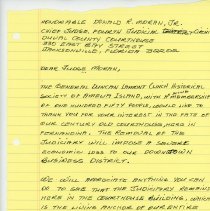 HONORABLE DONALD R. MORAN, JR.
CHIEF JUDGE, FOURTH JUDICIAL CIRCUIT
DUVAL COUNTY COURTHOUSE
330 EAST BAY STREET
JACKSONVILLE, FLORIDA
DEAR JUDGE MORAN,
THE GENERAL DUNCAN LAMONT CLINCH HISTORICAL
SOCIETY OF AMELIA ISLAND, WITH A MEMBERSHIP
OF ONE HUNDRED FIFTY PEOPLE, WOULD LIKE TO
THANK YOU FOR YOUR INTEREST IN THE FATE OF
OUR CENTURY OLD COURTHOUSE HERE IN
FERNANDINA. THE REMOVAL OF THE
JUDICIARY WILL IMPOSE A SEVERE
ECONOMIC LOSS TO OUR DOWNTOWN
BUSINESS DISTRICT.
WE WILL APPRECIATE ANYTHING YOU CAN
DO TO SEE THAT THE JUDICIARY REMAINS
HERE IN THE COURTHOUSE BUILDING, WHICH
IS THE LIVING ANCHOR OF OUR ENTIRE